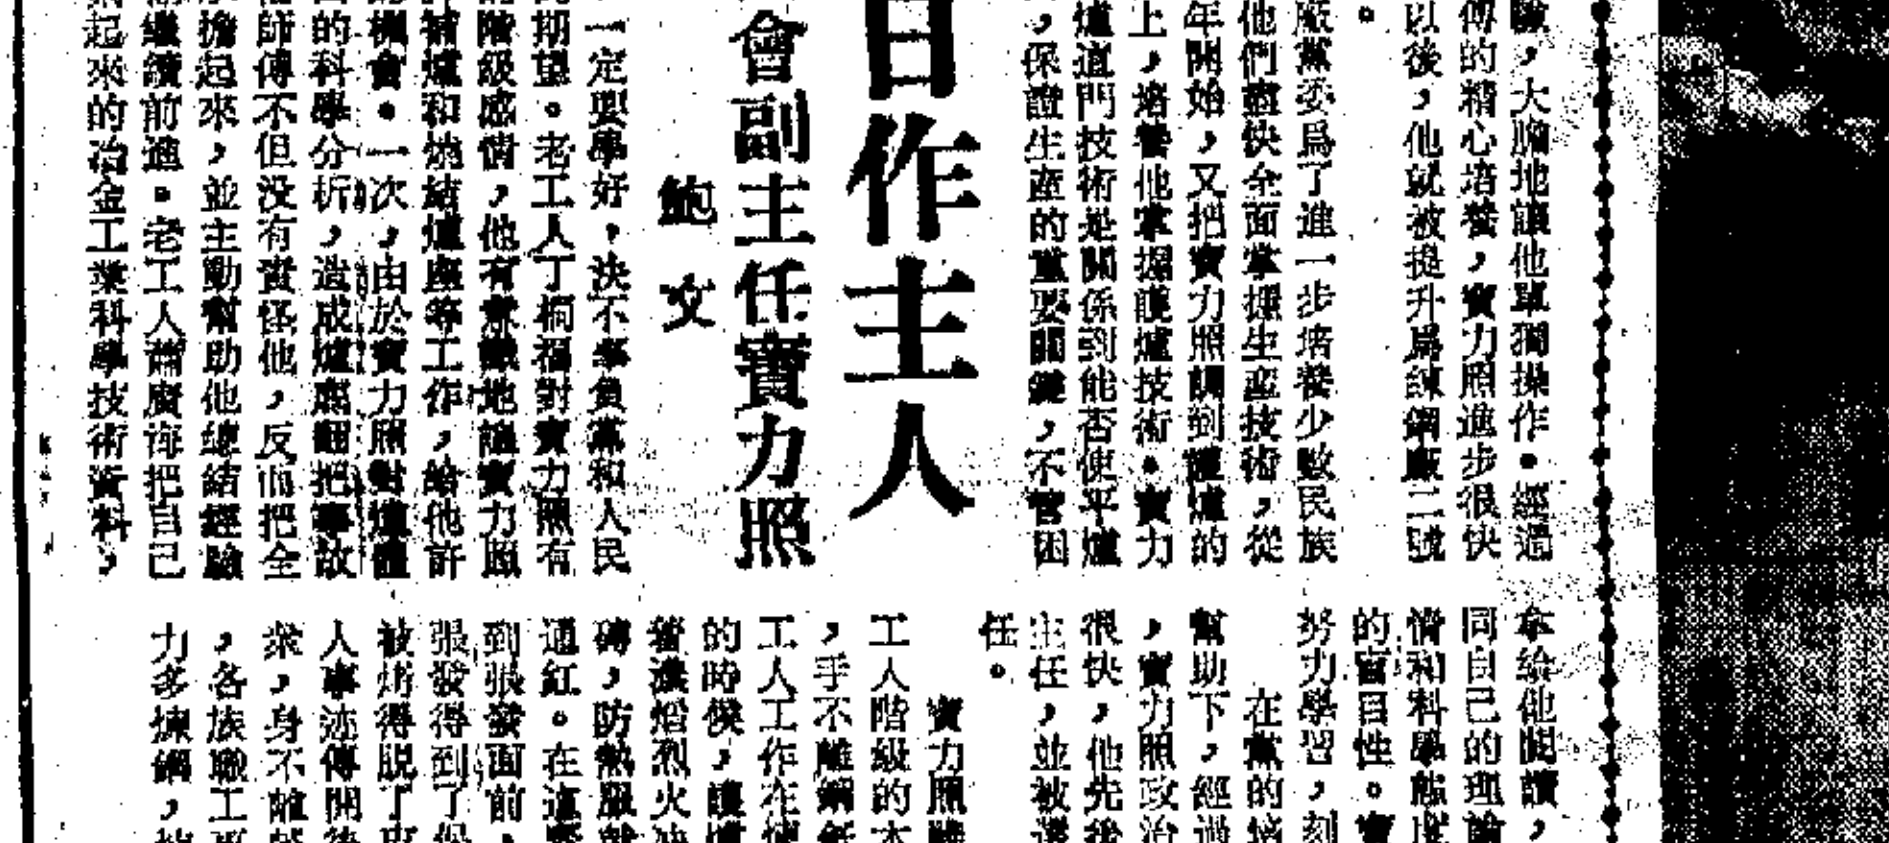 驗，大膽地讓他單獨操作。經過
傅的精心培養，寶力照進步很快
以後，他就被提升爲鍊鋼廠二號
。
廠黨委爲了進一步培養少數民族
他們盡快全面掌握生產技術，從
年開始，又把寶力照調到護爐的
上，培養他掌握護爐技術。寶力
爐這門技術是關係到能否使平爐
，保證生産的重要關鍵，不管困
日作主人
會副主任寶力照
鮑文
一定要學好，決不辜負黨和人民
期望。老工人丁桐福對寶力照有
階級感情，他有意識地讓寶力照
補爐和燒結爐底等工作，給他許
機會。一次，由於寶力照對爐體
的科學分析，造成爐底翻把事故
師傅不但没有責怪他，反而把全
擔起來，並主動幫助他總結經驗
繼續前進。老工人蕭廣海把自己
起來的冶金工業科學技術資料，
拿給他閲讀，
同自己的理論
情和科學態度
的盲目性。寶
努力學習，刻
在黨的培
幫助下，經過
，寶力照政治
很快，他先後
主任，並被選
任。
寶力照
工人階級的本
，手不離鋼
工人工作在
的時候，護
着濃煙烈火
磚，防熱服
通紅。在這
到張發面前，
張發得到了保
被烤得脱了皮
人事迹傳開後
來，身不離
，各族職工
力多煉鋼，